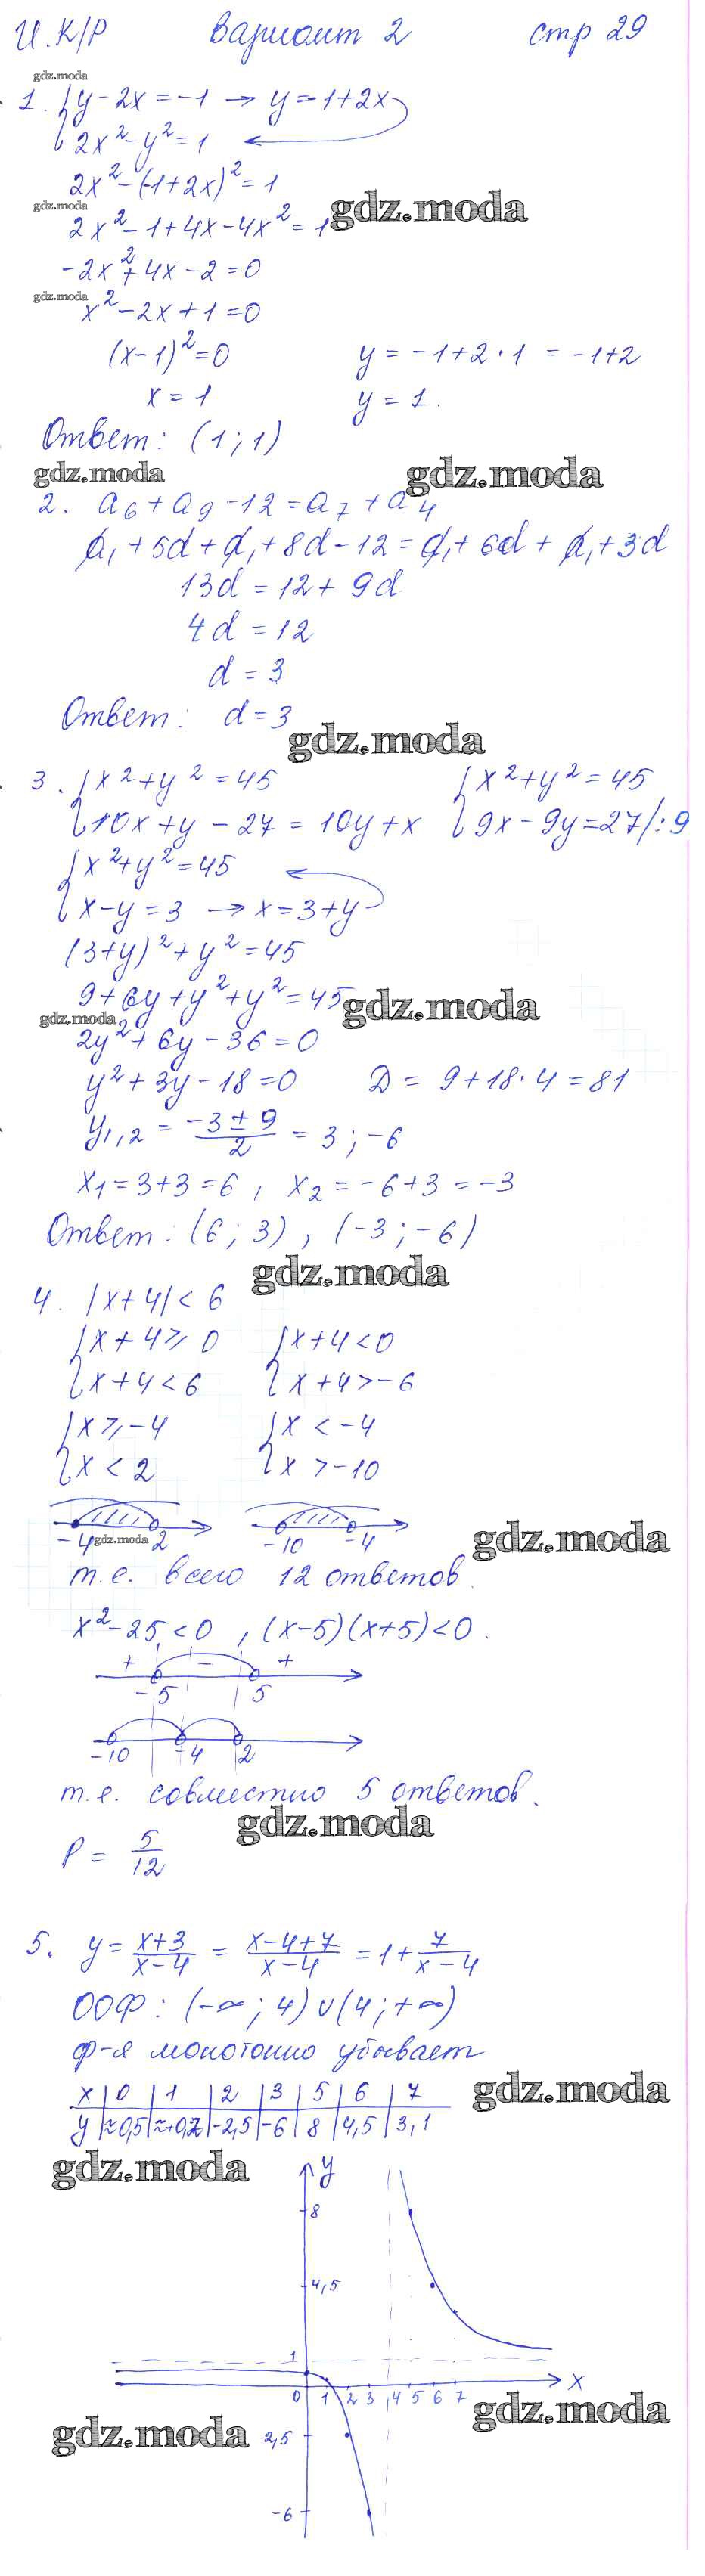 И.К/Р Вариант 2 стр 29
gdz.moda
1. { y - 2x = -1 → y = -1+2x
{ 2x² - y² = 1
2x² - (-1+2x)² = 1
gdz.moda
gdz.moda
2x² - 1 + 4x - 4x² = 1
-2x² + 4x - 2 = 0
gdz.moda
x² - 2x + 1 = 0
(x-1)² = 0 y = -1+2·1 = -1+2
x = 1 y = 1.
Ответ: (1; 1)
gdz.moda gdz.moda
2. a₆ + a₉ - 12 = a₇ + a₄
a₁ + 5d + a₁ + 8d - 12 = a₁ + 6d + a₁ + 3d
13d = 12 + 9d
4d = 12
d = 3
Ответ: d = 3
gdz.moda
3. { x² + y² = 45 { x² + y² = 45
{ 10x + y - 27 = 10y + x { 9x - 9y = 27 /: 9
{ x² + y² = 45
{ x - y = 3 → x = 3 + y
(3+y)² + y² = 45
9 + 6y + y² + y² = 45
gdz.moda
gdz.moda
2y² + 6y - 36 = 0
y² + 3y - 18 = 0 D = 9 + 18·4 = 81
y₁,₂ = (-3 ± 9)/2 = 3; -6
x₁ = 3+3 = 6, x₂ = -6+3 = -3
Ответ: (6; 3), (-3; -6)
gdz.moda
4. |x+4| < 6
{ x + 4 ≥ 0 { x+4 < 0
{ x + 4 < 6 { x+4 > -6
{ x ≥ -4 { x < -4
{ x < 2 { x > -10
-4 gdz.moda 2 -10 -4
gdz.moda
т.е. всего 12 ответов.
x² - 25 < 0, (x-5)(x+5) < 0.
+ - +
-5 5
-10 -4 2
т.е. совместно 5 ответов.
gdz.moda
P = 5/12
5. y = (x+3)/(x-4) = (x-4+7)/(x-4) = 1 + 7/(x-4)
ООФ: (-∞; 4) ∪ (4; +∞)
ф-я монотонно убывает
x | 0 | 1 | 2 | 3 | 5 | 6 | 7
gdz.moda
y | ≈0,5 | ≈+0,2 | -2,5 | -6 | 8 | 4,5 | 3,1
gdz.moda
y
8
4,5
1
x
0 1 2 3 4 5 6 7
gdz.moda
gdz.moda
2,5
-6